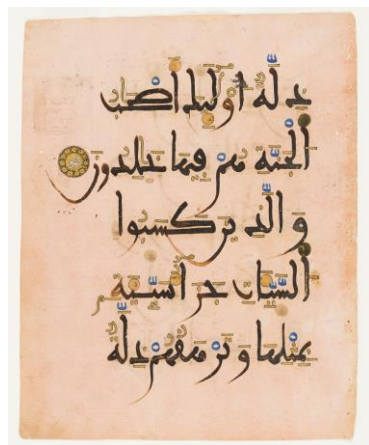 ذِلَّةٌ أُولَٰئِكَ أَصْحَٰبُ
ٱلْجَنَّةِ هُمْ فِيهَا خَٰلِدُونَ
وَٱلَّذِينَ كَسَبُوا
ٱلسَّيِّـَٔاتِ جَزَآءُ سَيِّئَةٍ
بِمِثْلِهَا وَتَرْهَقُهُمْ ذِلَّةٌ